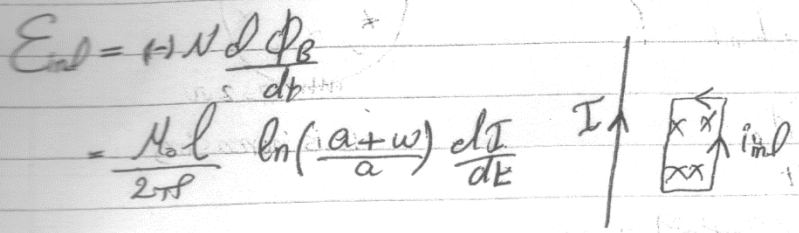 Ɛind = (-) N dΦB/dt
= μ₀l/2π ln(a+w/a) dI/dt
I
x x
xx
iind